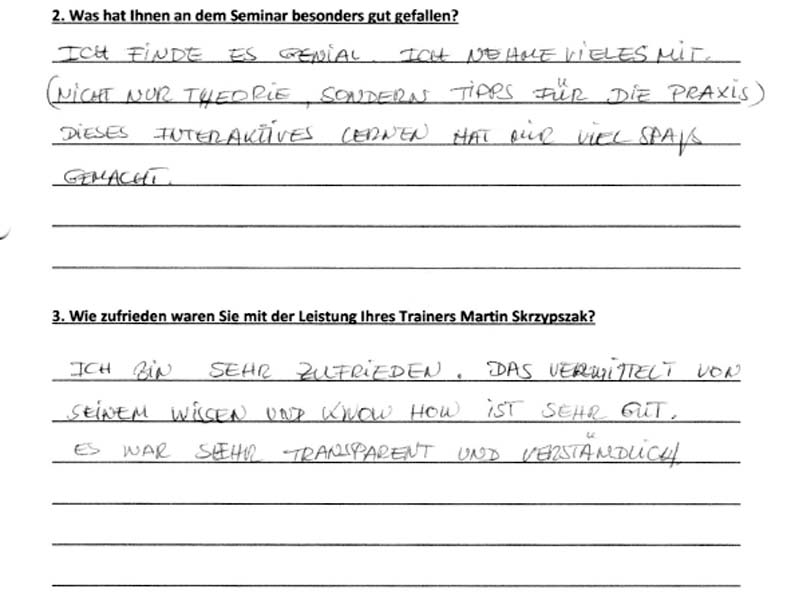 2. Was hat Ihnen an dem Seminar besonders gut gefallen?
ICH FINDE ES GENIAL. ICH NEHME VIELES MIT.
(NICHT NUR THEORIE, SONDERN TIPPS FÜR DIE PRAXIS)
DIESES INTERAKTIVES LERNEN HAT MIR VIEL SPAß
GEMACHT.
3. Wie zufrieden waren Sie mit der Leistung Ihres Trainers Martin Skrzypszak?
ICH BIN SEHR ZUFRIEDEN. DAS VERMITTELT VON
SEINEM WISSEN UND KNOW HOW IST SEHR GUT.
ES WAR SEHR TRANSPARENT UND VERSTÄNDLICH